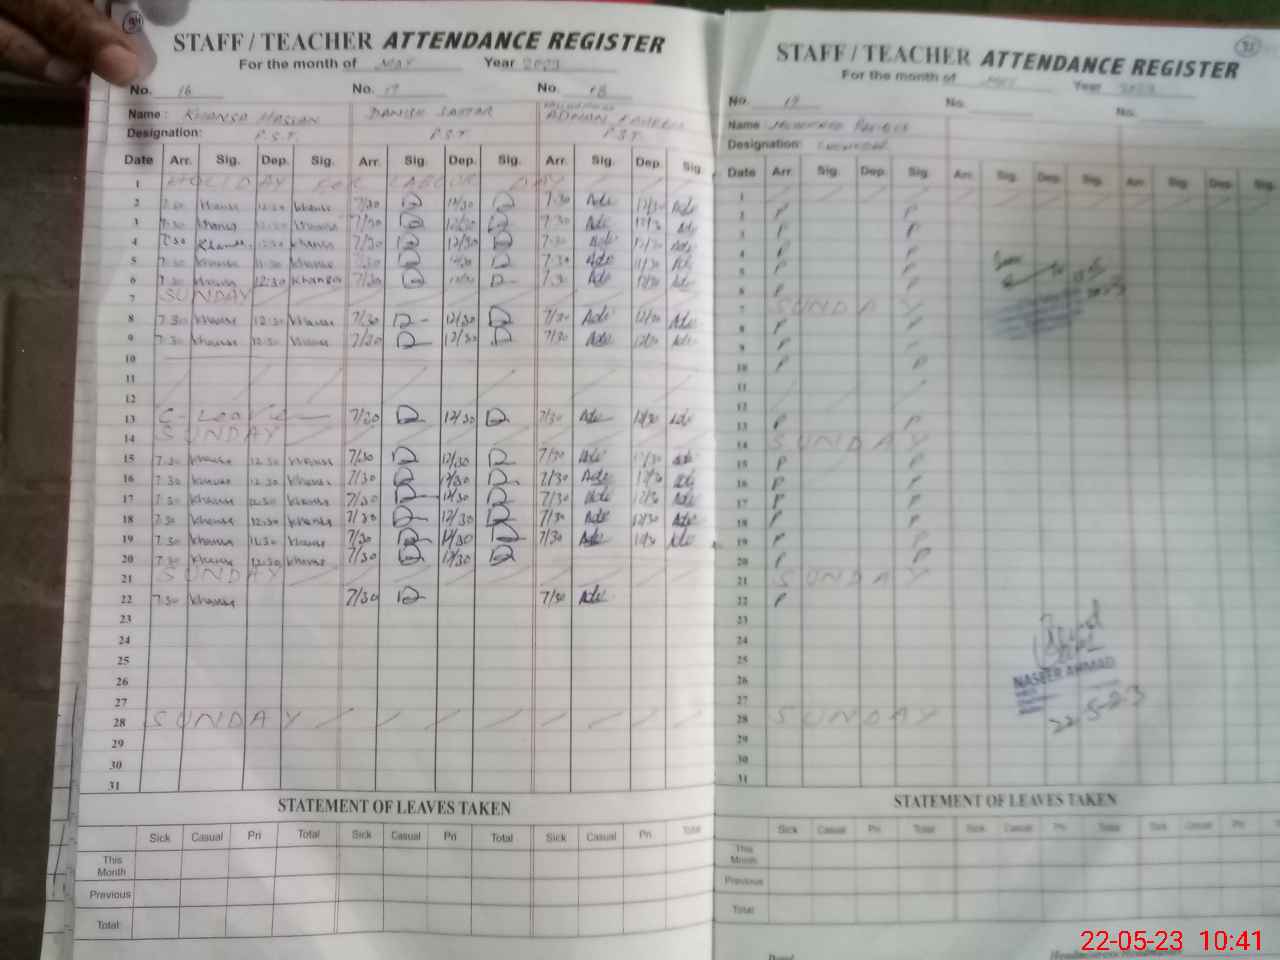 STAFF / TEACHER ATTENDANCE REGISTER
For the month of MAY Year 2023
No. 16 No. 17 No. 18
Name: KHANSA HASSAN DANISH SATTAR MUHAMMAD ADNAN
Designation: P.S.T. P.S.T P.S.T
Date Arr. Sig. Dep. Sig. Arr. Sig. Dep. Sig. Arr. Sig. Dep. Sig.
1 HOLIDAY FOR LABOUR DAY
2 7:30 khansa 12:30 khansa 7/30 D 12/30 D 7:30 Ads 12/30 Ads
3 7:30 khansa 12:30 khansa 7/30 D 12/30 D 7:30 Ads 12/30 Ads
4 7:30 Khansa 12:30 khansa 7/30 D 12/30 D 7:30 Ads 12/30 Ads
5 7:30 khansa 11:30 khansa 7/30 D D 7:30 Ads 11/30 Ads
6 7:30 khansa 12:30 khansa 7/30 D 12/30 D 7:30 Ads 12/30 Ads
7 SUNDAY
8 7:30 khansa 12:30 khansa 7/30 D 12/30 D 7/30 Ads 12/30 Ads
9 7:30 khansa 12:30 khansa 7/30 D 12/30 D 7/30 Ads 12/30 Ads
10
11
12
13 C-Leave 7/30 D 12/30 D 7/30 Ads 12/30 Ads
14 SUNDAY
15 7:30 khansa 12:30 khansa 7/30 D 12/30 D 7/30 Ads 12/30 Ads
16 7:30 khansa 12:30 khansa 7/30 D 12/30 D 7/30 Ads 12/30 Ads
17 7:30 khansa 12:30 khansa 7/30 D 12/30 D 7/30 Ads 12/30 Ads
18 7:30 khansa 12:30 khansa 7/30 D 12/30 D 7/30 Ads 12/30 Ads
19 7:30 khansa 11:30 khansa 7/30 D 11/30 D 7/30 Ads 11/30 Ads
20 7:30 khansa 12:30 khansa 7/30 D 12/30 D
21 SUNDAY
22 7:30 khansa 7/30 D 7/30 Ads
23
24
25
26
27
28 SUNDAY
29
30
31
STATEMENT OF LEAVES TAKEN
Sick Casual Pri Total Sick Casual Pri Total Sick Casual Pri Total
This Month
Previous
Total:
STAFF / TEACHER ATTENDANCE REGISTER
For the month of MAY Year 2023
No. 19 No. No.
Name
Designation:
Date Arr. Sig. Dep. Sig. Arr. Sig. Dep. Sig. Arr. Sig. Dep. Sig.
1
2 P P
3 P P
4 P P
5 P P
6 P P
7 SUNDAY
8 P P
9 P P
10 P P
11
12
13 P P
14 SUNDAY
15 P P
16 P P
17 P P
18 P P
19 P P
20 P P
21 SUNDAY
22 P
23
24
25
NASEER AHMAD
26
27
22-5-23
28 SUNDAY
29
30
31
STATEMENT OF LEAVES TAKEN
Sick Casual Pri Total Sick Casual Pri Total Sick Casual Pri Total
This Month
Previous
Total:
22-05-23 10:41